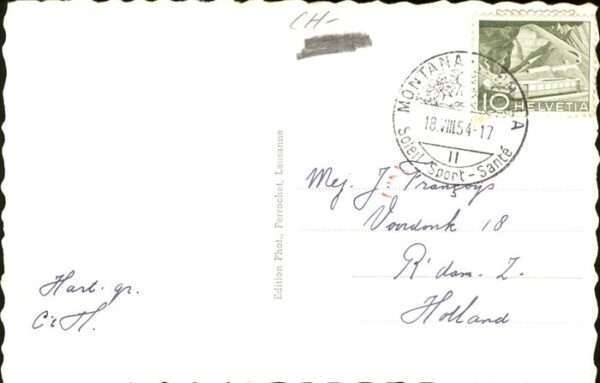 CH-
10 HELVETIA
MONTANA
18.VIII.54-17
11
Soleil-Sport-Santé
Edition Phot., Perrochet, Lausanne
Mej. J. Françoys
Voordonk 18
R'dam. Z.
Holland
Hart. gr.